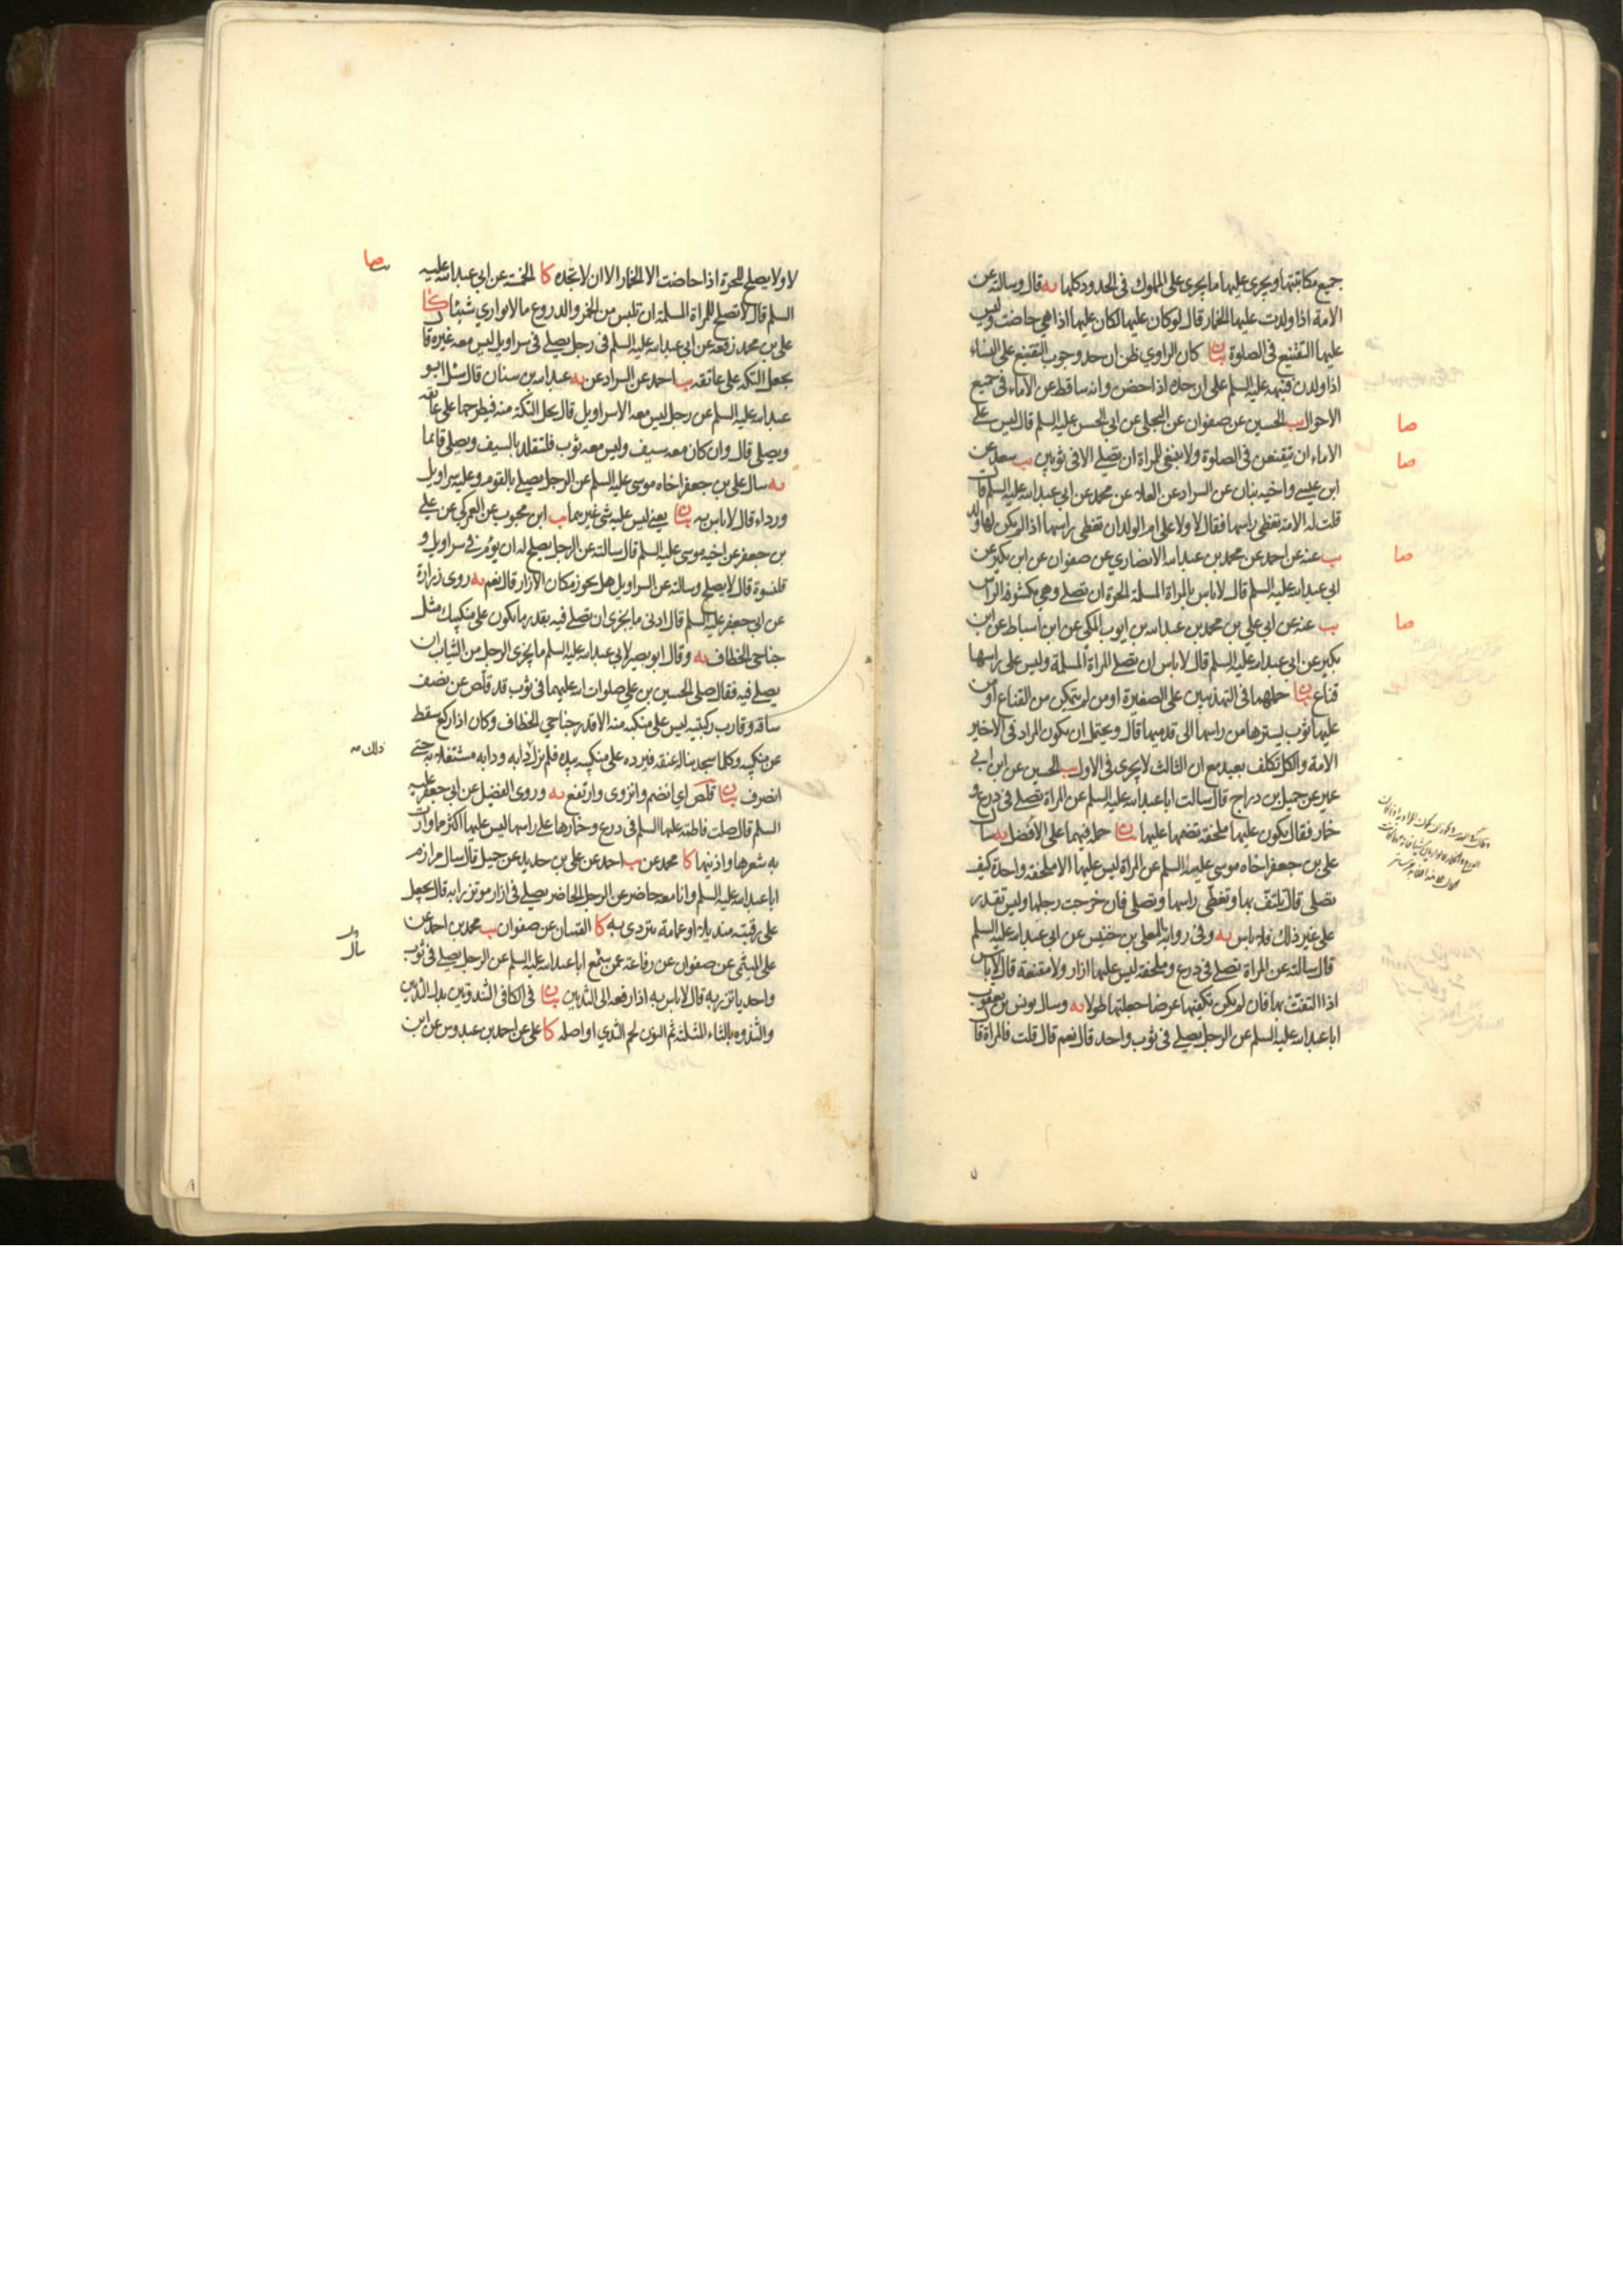 جميع مكاتبتها ويجرى عليها ما يجرى على المملوك في الحدود كلها يه قال وسالته عن
الامة اذا ولدت عليها الخمار قال لو كان عليها لكان عليها اذا هي حاضت وليس
عليها التقنيع في الصلوة بيان كان الراوي ظن ان حد وجوب التقنيع على النساء
اذا ولدن فنبهه عليه السلم على ان حده اذا حضن وانه ساقط عن الاماء في جميع
الاحوال يب الحسين عن صفوان عن البجلى عن ابي الحسن عليه السلم قال ليس على
الاماء ان يتقنعن في الصلوة ولا ينبغي للمراة ان تصلي الا في ثوبين يب سعد عن
ابن عيسى واخيه بنان عن السراد عن العلاء عن محمد عن ابي عبد الله عليه السلم قال
قلت له الامة تغطى راسها فقال لا ولا على ام الولد ان تغطى راسها اذا لم يكن لها ولد
يب عنه عن احمد عن محمد بن عبد الله الانصاري عن صفوان عن ابن بكير عن
ابي عبد الله عليه السلم قال لا باس بالمراة المسلمة الحرة ان تصلي وهي مكشوفة الراس
يب عنه عن ابي علي بن محمد بن عبد الله بن ايوب المكي عن ابن اسباط عن ابن
بكير عن ابي عبد الله عليه السلم قال لا باس ان تصلي المراة المسلمة وليس على راسها
قناع بيان حملهما في التهذيبين على الصغيرة او من لم يتمكن من القناع او من
عليها ثوب يسترها من راسها الى قدميها قال ويحتمل ان يكون المراد في الاخير
الامة والكل تكلف بعيد مع ان الثالث لا يجرى في الاول يب الحسين عن ابن ابي
عمير عن جميل بن دراج قال سالت ابا عبد الله عليه السلم عن المراة تصلي في درع و
خمار فقال يكون عليها ملحفة تضمها عليها بيان حمله فيهما على الافضل يه سال
على بن جعفر اخاه موسى عليه السلم عن المراة ليس عليها الا ملحفة واحدة كيف
تصلي قال تلتف بها وتغطى راسها وتصلي فان خرجت رجلها وليس تقدر
على غير ذلك فلا باس يه وفي رواية المعلى بن خنيس عن ابي عبد الله عليه السلم
قال سالته عن المراة تصلي في درع وملحفة ليس عليها ازار ولا مقنعة قال لا باس
اذا التفت بها فان لم يكن تكفيها عرضا جعلتها طولا يه وسال يونس بن يعقوب
ابا عبد الله عليه السلم عن الرجل يصلي في ثوب واحد قال نعم قال قلت فالمراة قال
صا
صا
صا
صا
لا ولا يصلح للحرة اذا حاضت الا الخمار الا ان لا تجده كا الخمسة عن ابي عبد الله عليه
السلم قال لا تصلح للمراة المسلمة ان تلبس من الخمر والدروع ما لا يواري شيئا كا
على بن محمد رفعه عن ابي عبد الله عليه السلم في رجل يصلي في سراويل ليس معه غيره قال
يجعل التكة على عاتقه يب احمد عن السراد عن يه عبد الله بن سنان قال سئل ابو
عبد الله عليه السلم عن رجل ليس معه الا سراويل قال يحل التكة منه فيطرحها على عاتقه
ويصلي قال وان كان معه سيف وليس معه ثوب فليتقلد بالسيف ويصلي قائما
يه سال على بن جعفر اخاه موسى عليه السلم عن الرجل يصلي بالقوم وعليه سراويل
ورداء قال لا باس به بيان يعني ليس عليه شئ غيرهما يب ابن محبوب عن العمركي عن على
بن جعفر عن اخيه موسى عليه السلم قال سالته عن الرجل يصلح له ان يؤم في سراويل و
قلنسوة قال لا يصلح وسالته عن السراويل هل يجوز مكان الازار قال نعم يه روى زرارة
عن ابي جعفر عليه السلم قال ادنى ما يجزى ان تصلي فيه بقدر ما يكون على منكبيك مثل
جناحي الخطاف يه وقال ابو بصير لابي عبد الله عليه السلم ما يجزى الرجل من الثياب ان
يصلي فيه فقال صلى الحسين بن علي صلوات الله عليهما في ثوب قد قلص عن نصف
ساقه وقارب ركبتيه ليس على منكبه منه الا قدر جناحي الخطاف وكان اذا ركع سقط
عن منكبيه وكلما سجد يناله عنقه فيرده على منكبيه بيده فلم يزل دابه ودابه مشتغلا به حتى
انصرف بيان قلص اي انضم وانزوى وارتفع يه وروى الفضيل عن ابي جعفر عليه
السلم قال صلت فاطمة عليها السلم في درع وخمارها على راسها ليس عليها اكثر ما وارت
به شعرها واذنيها كا محمد عن يب احمد عن على بن حديد عن جميل قال سال مرازم
ابا عبد الله عليه السلم وانا معه حاضر عن الرجل الحاضر يصلي في ازار موتزرا به قال يجعل
على رقبته منديلا او عمامة يتردى به كا القميان عن صفوان يب محمد بن احمد عن
على الميثمى عن صفوان عن رفاعة عمن سمع ابا عبد الله عليه السلم عن الرجل يصلي في ثوب
واحد ياتزر به قال لا باس به اذا رفعه الى الثديين بيان في الكافي الثندوتين بدل الثديين
والثندوه بالثاء المثلثة ثم النون لحم الثدي او اصله كا على عن احمد بن عبدوس عن ابن
صا
ذلك